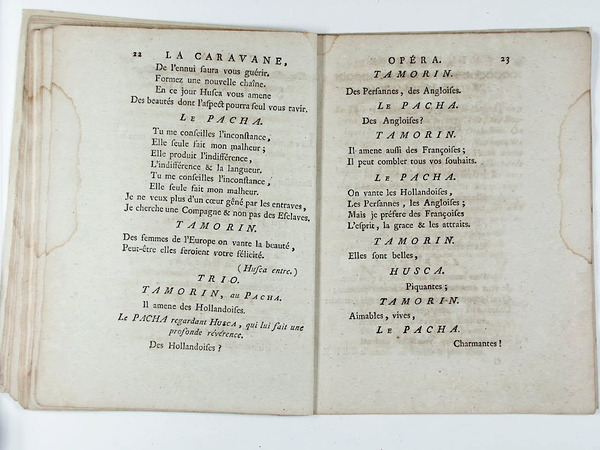 22 LA CARAVANE,
De l'ennui saura vous guérir.
Formez une nouvelle chaîne.
En ce jour Husca vous amene
Des beautés dont l'aspect pourra seul vous ravir.
LE PACHA.
Tu me conseilles l'inconstance,
Elle seule fait mon malheur;
Elle produit l'indifférence,
L'indifférence & la langueur.
Tu me conseilles l'inconstance,
Elle seule fait mon malheur.
Je ne veux plus d'un cœur gêné par les entraves,
Je cherche une Compagne & non pas des Esclaves.
TAMORIN.
Des femmes de l'Europe on vante la beauté,
Peut-être elles feroient votre félicité.
(Husca entre.)
TRIO.
TAMORIN, au PACHA.
Il amene des Hollandoises.
Le PACHA regardant HUSCA, qui lui fait une
profonde révérence.
Des Hollandoises?
OPÉRA. 23
TAMORIN.
Des Persannes, des Angloises.
LE PACHA.
Des Angloises?
TAMORIN.
Il amene aussi des Françoises;
Il peut combler tous vos souhaits.
LE PACHA.
On vante les Hollandoises,
Les Persannes, les Angloises;
Mais je préfere des Françoises
L'esprit, la grace & les attraits.
TAMORIN.
Elles sont belles,
HUSCA.
Piquantes;
TAMORIN.
Aimables, vives,
LE PACHA.
Charmantes!